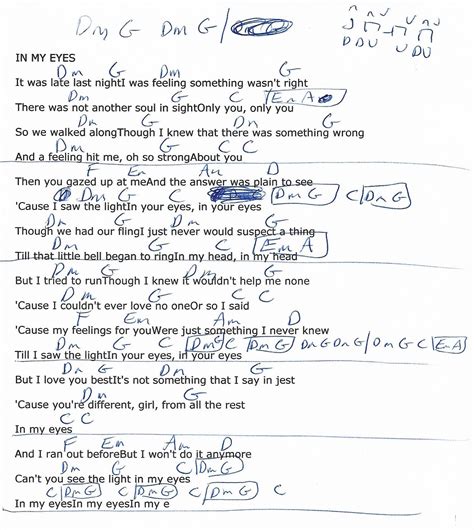 Dm G Dm G /
D D U U D U
IN MY EYES
Dm G Dm G
It was late last nightI was feeling something wasn't right
Dm G C Em A
There was not another soul in sightOnly you, only you
Dm G Dm G
So we walked alongThough I knew that there was something wrong
Dm G C C
And a feeling hit me, oh so strongAbout you
F Em Am D
Then you gazed up at meAnd the answer was plain to see
Dm G C Dm G C Dm G
'Cause I saw the lightIn your eyes, in your eyes
Dm G Dm G
Though we had our flingI just never would suspect a thing
Dm G C Em A
Till that little bell began to ringIn my head, in my head
Dm G Dm G
But I tried to runThough I knew it wouldn't help me none
Dm G C C
'Cause I couldn't ever love no oneOr so I said
F Em Am D
'Cause my feelings for youWere just something I never knew
Dm G C Dm G C Dm G Dm G Dm G / Dm G C Em A
Till I saw the lightIn your eyes, in your eyes
Dm G Dm G
But I love you bestIt's not something that I say in jest
Dm G
'Cause you're different, girl, from all the rest
C C
In my eyes
F Em Am D
And I ran out beforeBut I won't do it anymore
Dm G C Dm G
Can't you see the light in my eyes
C Dm G C Dm G C Dm G C
In my eyesIn my eyesIn my e